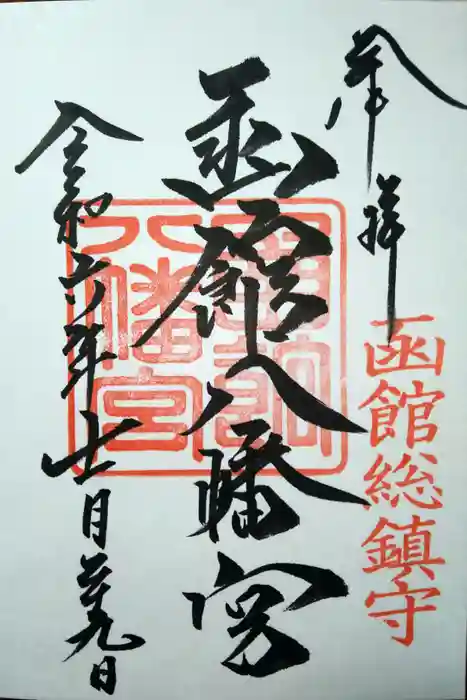 奉拝
函館総鎮守
函館八幡宮
函館八幡宮
令和六年十一月廿九日